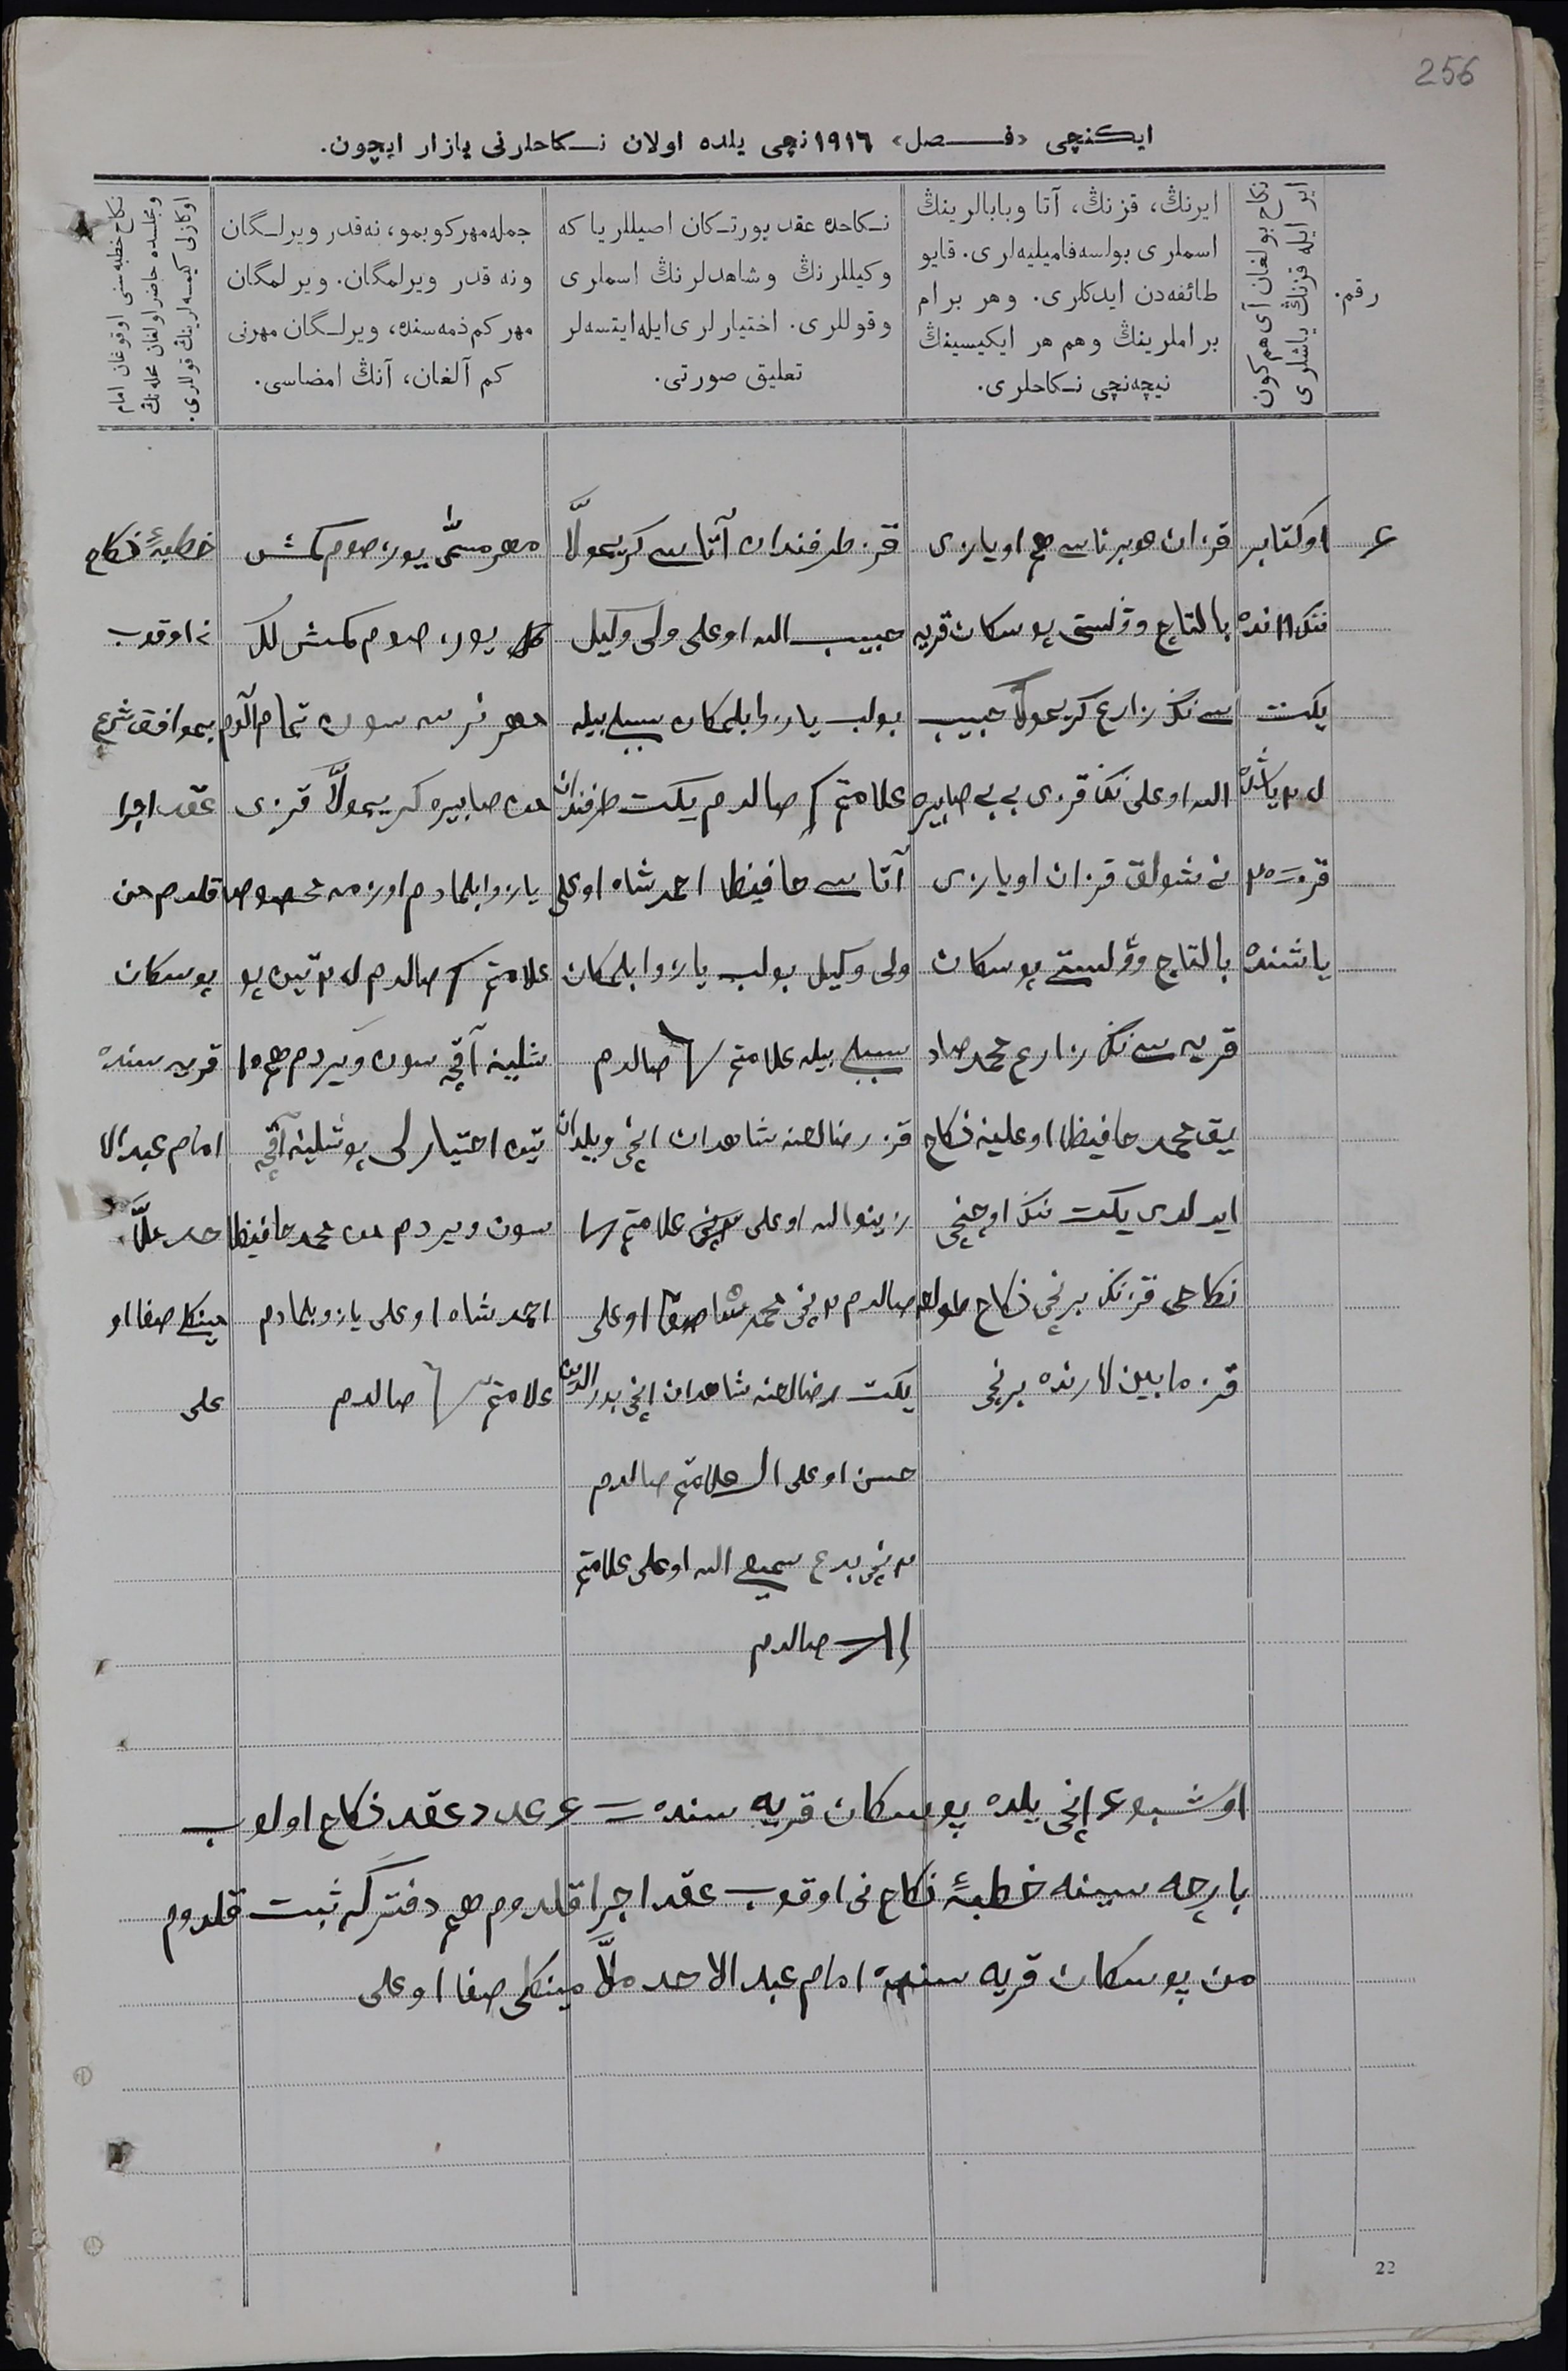 256
ایكنچی «فـصل» ١٩١٦نچی یلده اولان نكاحلرنی یازار ایچون.
رقم.
ایر ایله قزنڭ یاشلری
نكاح بولغان آی هم كون
ایرنڭ، قزنڭ، آتا وبابالرینڭ
اسملری بولسه فامیلیه‌لری. قایو
طائفه‌دن ایدكلری. وهر برام
براملرینڭ وهم هر ایكیسینڭ
نیچه‌نچی نكاحلری.
نكاحده عقد یورتكان اصیللر یا كه
وكیللرنڭ وشاهدلرنڭ اسملری
وقوللری. اختیارلری ایله ایتسه‌لر
تعلیق صورتی.
جمله مهر كوبمو، نه‌قدر ویرلگان
ونه قدر ویرلمگان. ویرلمگان
مهر كم ذمه‌سنده، ویرلگان مهرنی
كم آلغان، آنڭ امضاسی.
نكاح خطبه‌سنی اوقوغان امام
ومجلسده حاضر اولغان محله‌نڭ
اوكازلی كیمسه‌لرینڭ قوللاری.
٤
اوكتابر
ننك ١١نده
یكت
یاشنده
قز ٢٥
یاشنده
قزان هوبرناسی هم اویازی
بالتاچ وۋلستی پوسكان قریه
سی ننك زارع كریموللا حبیب
الله اوغلی ننك قزی بی بی صابیره
نی شولوق قزان اویازی
بالتاچ وۋلستی پوسكان
قریه سی ننك زارع محمد صاد
یق محمد حافیظا اوغلینه نكاح
ایدلدی یكت ننك اوچنچی
نكاحی قزننك برنچی نكاح
قز مابین لارنده برنچی
قز طرفندان آتاسی كریموللا
حبیب الله اوغلی ولی وكیل
بولب یازوا بلمكان سببلی بیله
علامتم صالدم یكت طرفندان
آتاسی حافیظا احمدشاه اوغلی
ولی وكیل بولب یازوا بلمكان
سببلی بیله علامتم صالدم
قز رضالغنه شاهدان ١نچی
زینوالله اوغلی علامتم
صالدم ٢نچی محمد اوغلی
یكت رضالغنه شاهدان ١نچی بدرالدین
حسن اوغلی علامتم صالدم
٢نچی سمیع الله اوغلی علامتم
صالدم
مهر مسمّٰی یوز صوم كمش
یوز صوم كمش لك
مهر نرسه سون تمام آلدم
من صابیره كریموللا قزی
یازوا بلمادم اوزمه مخصوص
علامتم صالدم
شلینه آقچه سون ویردم هم ١٥
تین اختیارلی پوشلینه آقچه
سون ویردم من محمد حافیظا
احمدشاه اوغلی یازو بلمادم
علامتم صالدم
خطبهٔ نكاح
نی اوقوب
بموافق شرع
عقد اجرا
قلدم من
پوسكان
قریه سنده
امام عبدالا
حد ملّا
مینكلی صفا او
غلی
اوشبو ٤ ١نچی یلده پوسكان قریه سنده = ٤ عدد عقد نكاح اولوب
بارچه سینه خطبهٔ نكاح نی اوقوب عقد اجرا قلدوم هم دفتركه ثبت قلدوم
من پوسكان قریه سنده امام عبدالاحد ملّا مینكلی صفا اوغلی
22